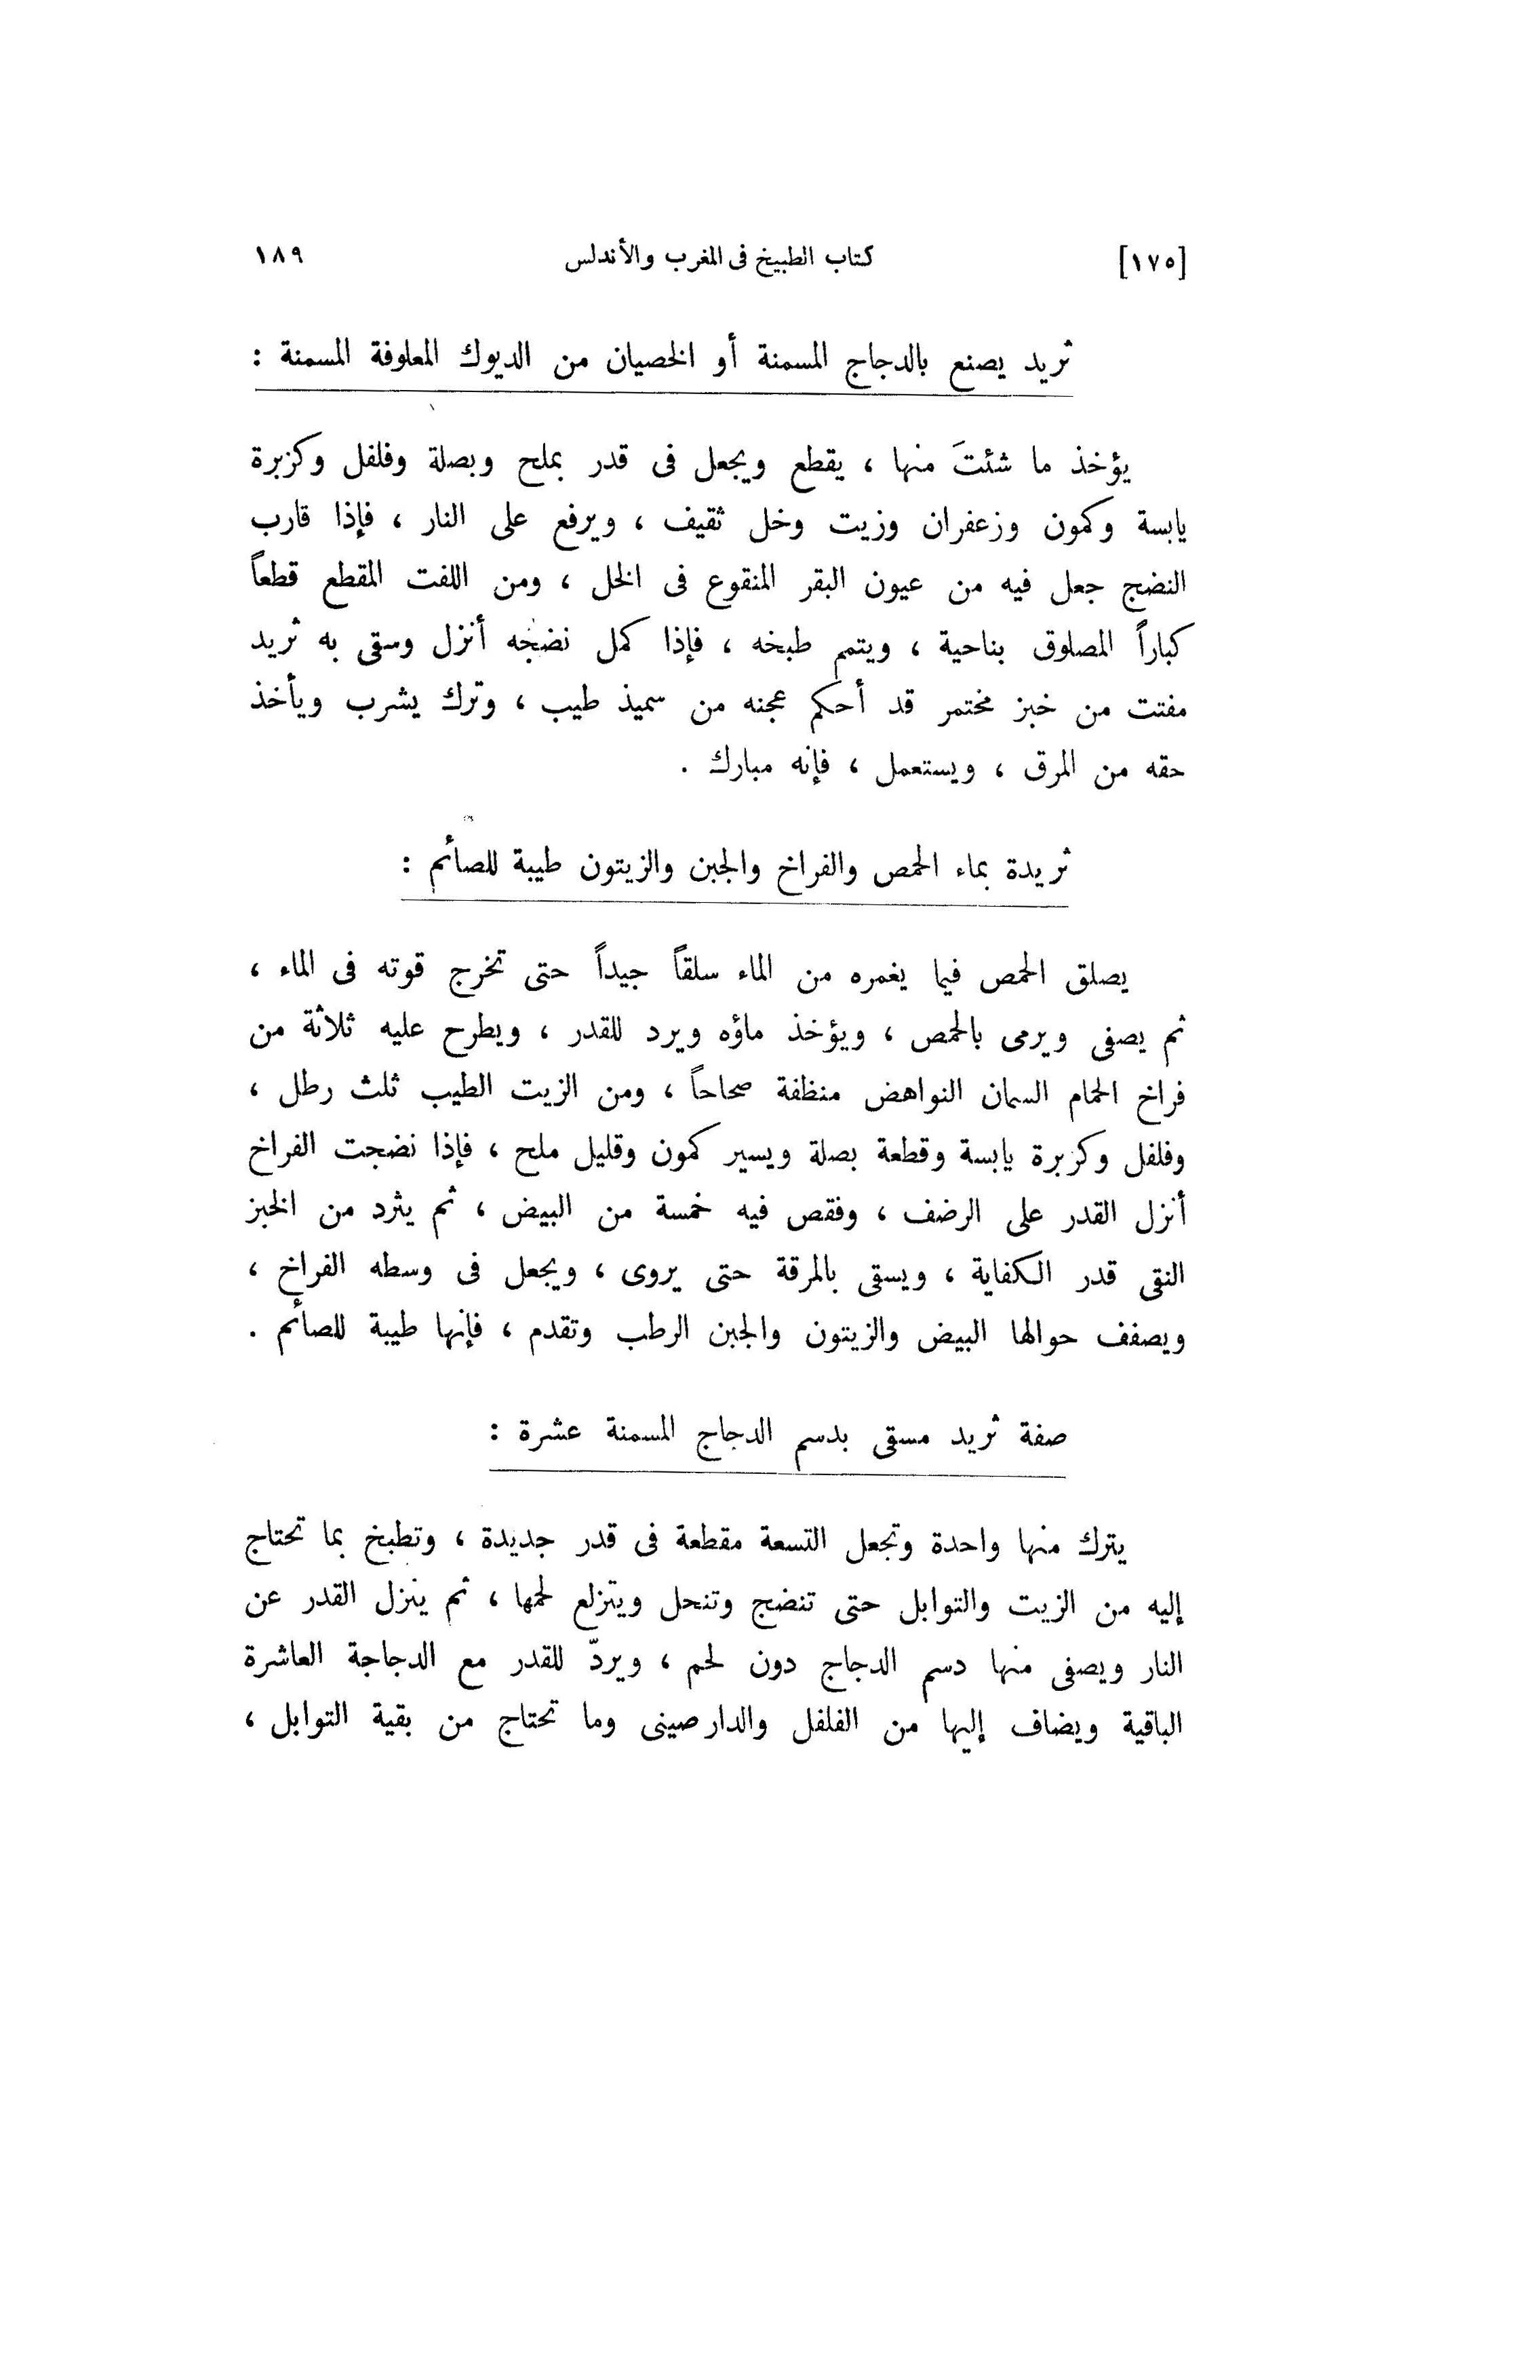 [١٧٥] كتاب الطبيخ فى المغرب والأندلس ١٨٩
ثريد يصنع بالدجاج المسمنة أو الخصيان من الديوك المعلوفة المسمنة :
يؤخذ ما شئتَ منها ، يقطع ويجعل فى قدر بملح وبصلة وفلفل وكزبرة
يابسة وكمون وزعفران وزيت وخل ثقيف ، ويرفع على النار ، فإذا قارب
النضج جعل فيه من عيون البقر المنقوع فى الخل ، ومن اللفت المقطع قطعاً
كباراً المصلوق بناحية ، ويتمم طبخه ، فإذا كمل نضجه أنزل وسقى به ثريد
مفتت من خبز مختمر قد أحكم عجنه من سميذ طيب ، وترك يشرب ويأخذ
حقه من المرق ، ويستعمل ، فإنه مبارك .
ثريدة بماء الحمص والفراخ والجبن والزيتون طيبة للصائم :
يصلق الحمص فيما يغمره من الماء سلقاً جيداً حتى تخرج قوته فى الماء ،
ثم يصفى ويرمى بالحمص ، ويؤخذ ماؤه ويرد للقدر ، ويطرح عليه ثلاثة من
فراخ الحمام السمان النواهض منظفة صحاحاً ، ومن الزيت الطيب ثلث رطل ،
وفلفل وكزبرة يابسة وقطعة بصلة ويسير كمون وقليل ملح ، فإذا نضجت الفراخ
أنزل القدر على الرضف ، وفقص فيه خمسة من البيض ، ثم يثرد من الخبز
النقى قدر الكفاية ، ويسقى بالمرقة حتى يروى ، ويجعل فى وسطه الفراخ ،
ويصفف حوالها البيض والزيتون والجبن الرطب وتقدم ، فإنها طيبة للصائم .
صفة ثريد مسقى بدسم الدجاج المسمنة عشرة :
يترك منها واحدة وتجعل التسعة مقطعة فى قدر جديدة ، وتطبخ بما تحتاج
إليه من الزيت والتوابل حتى تنضج وتنحل ويتزلع لحمها ، ثم ينزل القدر عن
النار ويصفى منها دسم الدجاج دون لحم ، ويردّ للقدر مع الدجاجة العاشرة
الباقية ويضاف إليها من الفلفل والدارصينى وما تحتاج من بقية التوابل ،